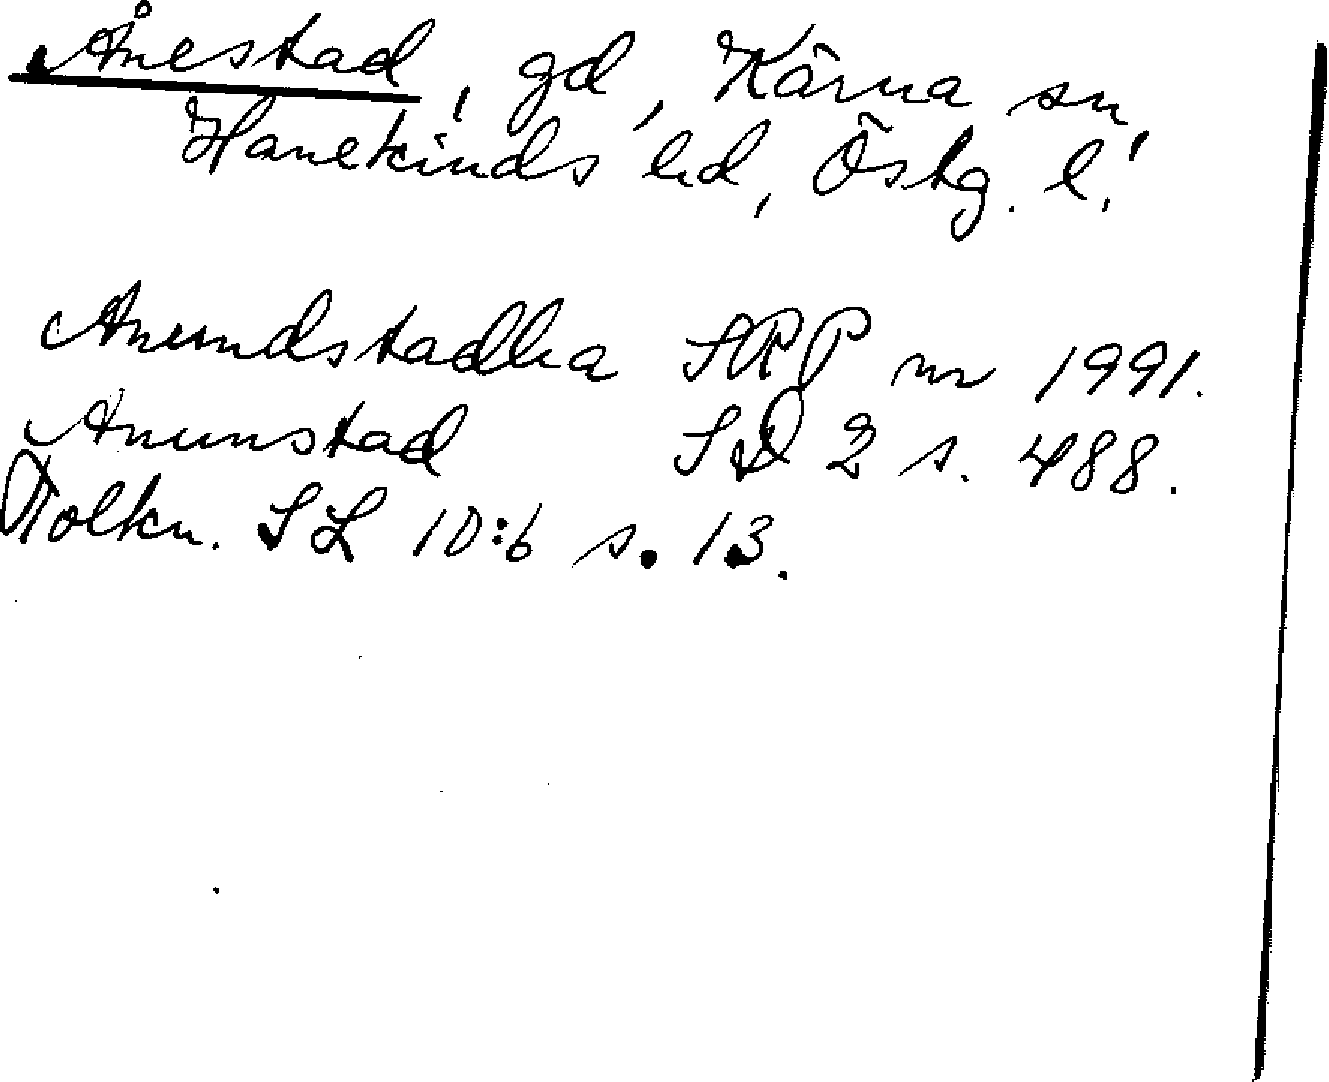 Ånestad, gd, Kärna sn,
Hanekinds hd, Östg. l.
Anundstadha SRP nr 1991.
Anunstad SD 2 s. 488.
Tolkn. SL 10:6 s. 13.